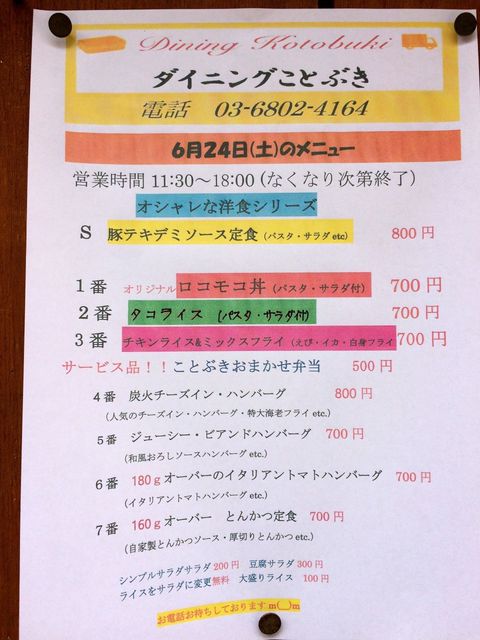 Dining Kotobuki
ダイニングことぶき
電話 03-6802-4164
6月24日(土)のメニュー
営業時間 11:30～18:00 (なくなり次第終了)
オシャレな洋食シリーズ
S 豚テキデミソース定食 (パスタ・サラダ etc) 800 円
1番 オリジナル ロコモコ丼 (パスタ・サラダ付) 700 円
2番 タコライス (パスタ・サラダ付) 700 円
3番 チキンライス&ミックスフライ (えび・イカ・白身フライ 700 円
サービス品！！ことぶきおまかせ弁当 500 円
4番 炭火チーズイン・ハンバーグ 800 円
(人気のチーズイン・ハンバーグ・特大海老フライ etc.)
5番 ジューシー・ビアンドハンバーグ 700 円
(和風おろしソースハンバーグ etc.)
6番 180ｇオーバーのイタリアントマトハンバーグ 700 円
(イタリアントマトハンバーグ etc.)
7番 160ｇオーバー とんかつ定食 700 円
(自家製とんかつソース・厚切りとんかつ etc.)
シンプルサラダサラダ 200 円 豆腐サラダ 300 円
ライスをサラダに変更無料 大盛りライス 100 円
お電話お待ちしております m(__)m